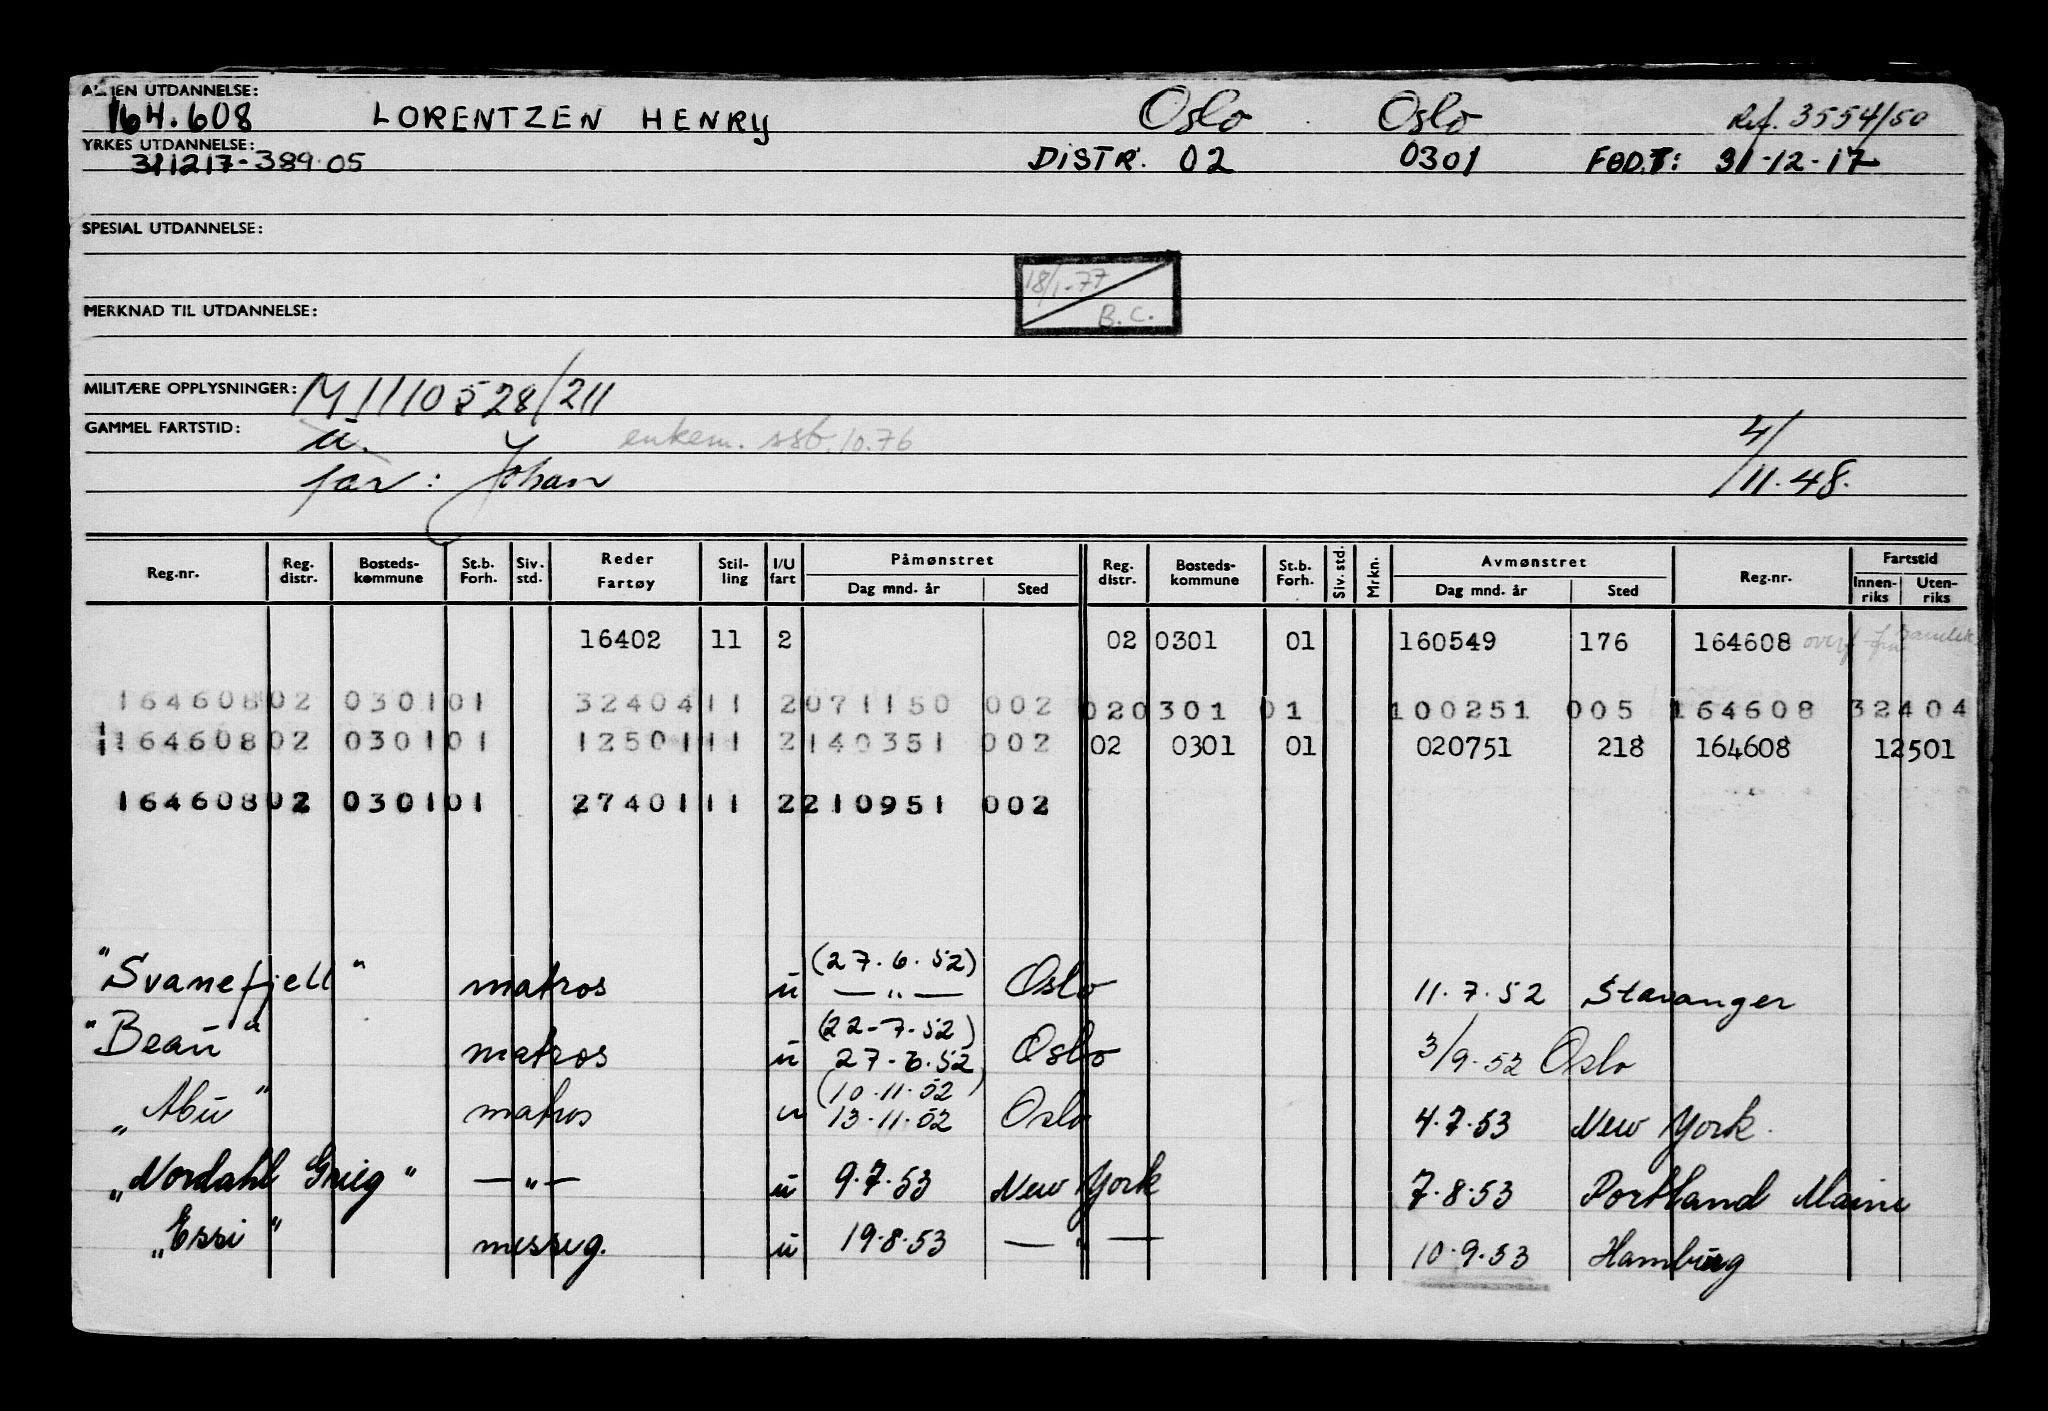 ALMEN UTDANNELSE:
164.608 LORENTZEN HENRY Oslo Oslo Ref. 3554/50
YRKES UTDANNELSE:
311217-389.05 DISTR. 02 0301 FØDT: 31-12-17
SPESIAL UTDANNELSE:
18/1-77
B.C.
MERKNAD TIL UTDANNELSE:
MILITÆRE OPPLYSNINGER: M1110528/211
GAMMEL FARTSTID: u. enkem. ssb. 10.76 4/
far: Johan 11.48.
Reg.nr. Reg. distr. Bosteds-kommune St.b. Forh. Siv. std. Reder Fartøy Stil-ling I/U fart Påmønstret Dag mnd. år Sted Reg. distr. Bosteds-kommune St.b. Forh. Siv. std. Mrkn. Avmønstret Dag mnd. år Sted Reg.nr. Fartstid Innen-riks Uten-riks
16402 11 2 02 0301 01 160549 176 164608 overf fra
164608 02 0301 01 32404 11 2 071150 002 02 0301 01 100251 005 164608 32404
164608 02 0301 01 12501 11 2 140351 002 02 0301 01 020751 218 164608 12501
164608 02 0301 01 27401 11 2 210951 002
(27.6.52)
"Svanefjell" matros u — " — Oslo 11.7.52 Stavanger
(22-7-52)
"Beau" matros u 27-6.52 Oslo 3/9.52 Oslo
(10.11.52)
"Abu" matros u 13.11.52 Oslo 4.7.53 New York.
"Nordahl Grieg" — " — u 9.7.53 New York 7.8.53 Portland Maine
"Essi" messeg. u 19.8.53 — " — 10.9.53 Hamburg